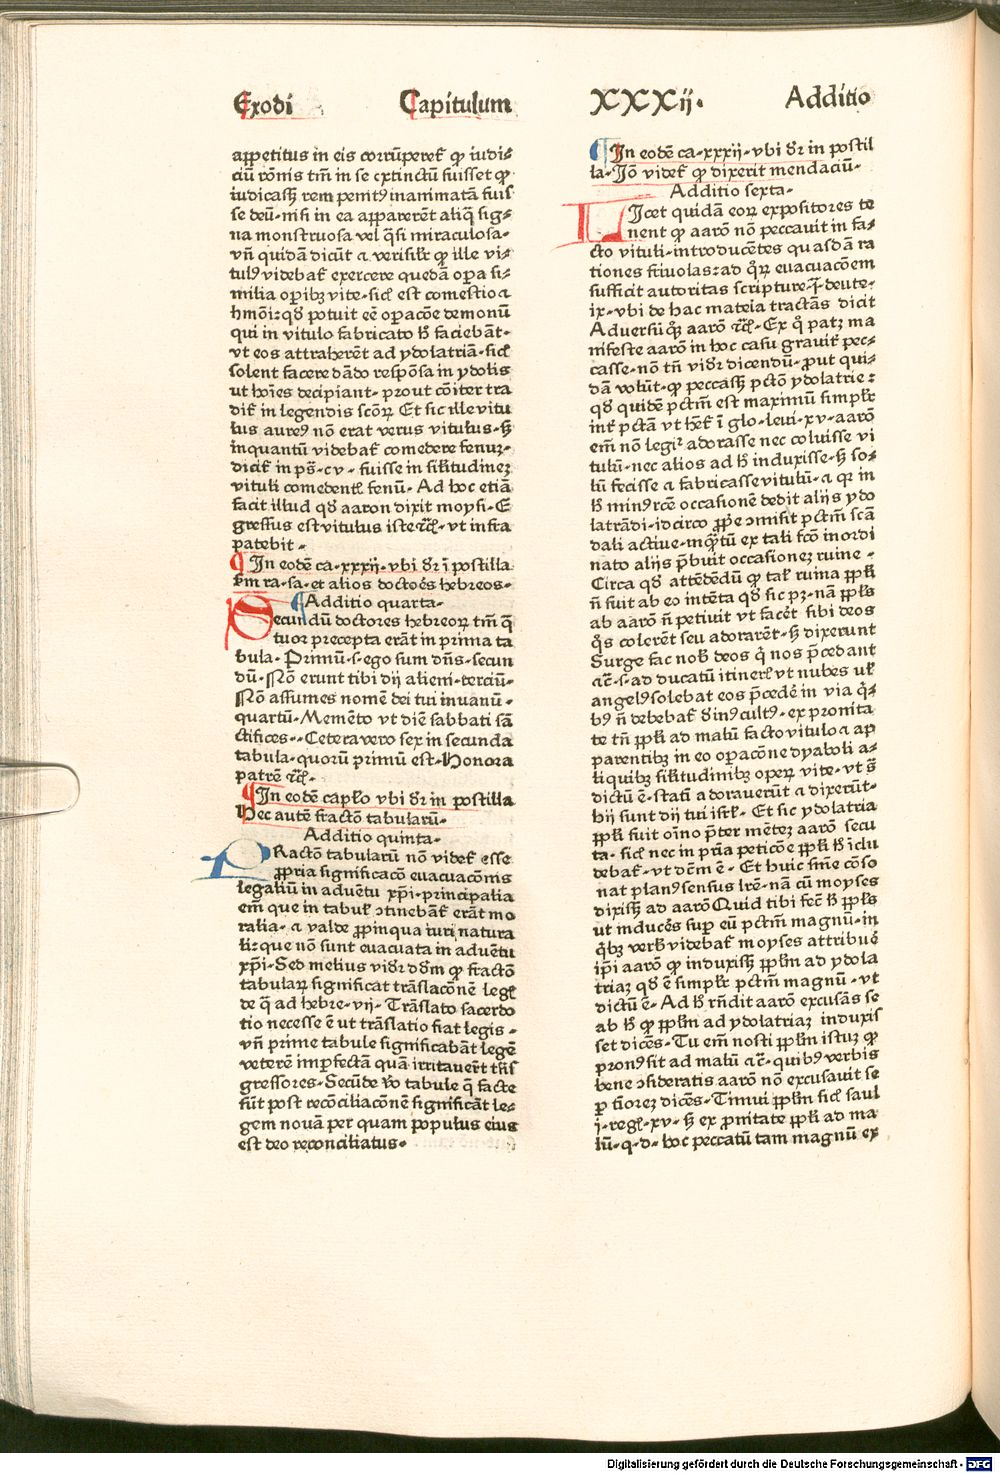 Exodi Capitulum XXXij. Additio
appetitus in eis corrūperet᷒ ꝙ iudi⸗
ciū rōnis tm̄ in se extinctū fuisset ꝙ
iudicassꝫ rem penitꝰ inanimatā fuis
se deū.nisi in ea apparerēt aliq̄ sig⸗
na monstruosa vel q̄si miraculosa.
vn̄ quidā dicūt ⁊ verisilr̄ ꝙ ille vi⸗
tulꝰ videbat᷒ exercere quedā oꝑa si⸗
milia oꝑibꝫ vite.sicł est comestio ⁊
hmōi:qđ potuit eē oꝑacōe demonū
qui in vitulo fabricato hͦ faciebāt.
vt eos attraherēt ad ydolatriā.sicł
solent facere dādo respōsa in ydolis
ut hoīes decipiant.prout cōiter tra
dit᷒ in legendis scōꝝ Et sic ille vitu
lus aureꝰ nō erat verus vitulus.sꝫ
inquantū videbat᷒ comedere fenuꝫ.
dicit᷒ in ps̄.cv. fuisse in silitudineꝫ
vituli comedentꝭ fenū. Ad hoc etiā
facit illud qđ aaron dixit moysi.E
gressus est vitulus iste ⁊cꝭ.vt infra
patebit.
¶ In eodē ca.xxxij.vbi dr̄ ī postilla
ſm ra.sa.et alios doctoēs hebreos.
¶ Additio quarta.
Secundū doctores hebreoꝝ tm̄ q̄
tuor precepta erāt in prima ta
bula. Primū.s.ego sum dn̄s.secun
dū.Nō erunt tibi dij alieni.terciū.
Nō assumes nomē dei tui inuanū.
quartū.Memēto vt diē sabbati sā
ctifices..Cetera vero sex in secunda
tabula.quorū primū est.Honora
patrē ⁊cꝭ.
¶ In eodē capło vbi dr̄ in postilla
Hec autē fractō tabularū.
Additio quinta.
FRactō tabularū nō videt᷒ esse
ꝓpria significacō euacuacōnis
legaliū in aduētu xp̄i.principalia
em̄ que in tabuł ↄtinebāt᷒ erāt mo
ralia. ⁊ valde ꝓpinqua iuri natura
li:que nō sunt euacuata in aduētu
xp̄i.Sed melius vidr̄ dōm ꝙ fractō
tabulaꝝ significat trāslacōnē legꝭ
de q̄ ad hebre.vij. Trāslato sacerdo
tio necesse ē ut trāslatio fiat legis.
vn̄ prime tabule significabāt legē
veterē imꝑfectā quā irritauerūt tn̄s
gressores.Secūde ꝟo tabule q̄ facte
sūt post recōciliacōnē significāt le⸗
gem nouā per quam populus eius
est deo reconciliatus.
¶ In eodē ca.xxxij.vbi dr̄ in postil
la.Iō videt᷒ ꝙ dixerit mendaciū.
Additio sexta.
LIcet quidā eoꝝ expositores te
nent ꝙ aarō nō peccauit in fa⸗
cto vituli.introducētes quasdā ra
tiones friuolas:ad q̄ꝝ euacuacōem
sufficit autoritas scripture.ī deute.
ix.vbi de hac materia tractās dicit
Aduersūqꝫ aarō ⁊cꝭ. Ex qͦ patꝫ ma
nifeste aarō in hoc casu grauit᷒ pec⸗
casse.nō tn̄ vidr̄ dicendū.ꝓut qui⸗
dā volūt.ꝙ peccassꝫ pctō ydolatrie:
qđ quidē pctm̄ est maximū simplr̄
int᷒ pctā vt hēt᷒ ī glo.leui.xv.aarō
em̄ nō legit᷒ adorasse nec coluisse vi
tulū.nec alios ad hͦ induxisse.sꝫ so⸗
lū fecisse ⁊ fabricasse vitulū.⁊ qꝛ in
hͦ minꝰrcē occasionē dedit alijs ydo
latrādi.idcirco ꝓpe ↄmisit pctm̄ scā
dali actiue.inqꝫtū ex tali fcō inordi
nato alijs p̄buit occasioneꝫ ruine.
Circa qđ attēdēdū ꝙ taƚ ruina pplī
n̄ fuit ab eo intēta qđ sic pꝫ.nā ppl̄s
ab aarō n̄ petiuit vt facēt sibi deos
qͦs colerēt seu adorarēt.sꝫ dixerunt
Surge fac nob̄ deos q̇ nos p̄cedant
⁊c̄.s.ad ducatū itinerꝭ vt nubes uł
angelꝰ solebat eos p̄cedē in via q̇⸗
bꝰ n̄ debebat᷒ diuinꝰ cultꝰ.ex pronita
te tn̄ pplī ad malū facto vitulo ⁊ ap
parentibꝫ in eo oꝑacōne dyaboli a⸗
liquibꝫ silitudinibꝫ opeꝝ vite.vt s̄
dictū ē.statī adorauerūt ⁊ dixerūt.
hij sunt dij tui isrł. Et sic ydolatria
pplī fuit oīno p̄ter mēteꝫ aarō secu
ta.sicł nec in pria peticōe pplī hͦ īclu
debat᷒.vt dc̄m ē. Et huic sn̄ie cōso
nat planꝰ sensus lrē.nā cū moyses
dixissꝫ ad aarō Quid tibi fec̄ hͦ ppl̄s
ut induces suꝑ eū pctm̄ magnū.in
q̇bꝫ verb̄ videbat᷒ moyses attribuē
ip̄i aarō ꝙ induxissꝫ pplm̄ ad ydola
triaꝫ qđ ē simplr̄ pctm̄ magnū.vt
dictū ē. Ad hͦ rn̄dit aarō excusās se
ab hͦ ꝙ pplm̄ ad ydolatriaꝫ induxis
set dicēs.Tu em̄ nosti pplm̄ istuꝫ ꝙ
pronꝰ sit ad malū ⁊c̄.quibꝰ verbis
bene ↄsideratis aarō nō excusauit se
ꝑ tioreꝫ dicēs.Timui pplm̄ sicł saul
j.regꝭ.xv.sꝫ ex ꝓnitate pplī ad ma
lū.q.d.hoc peccatū tam magnū ex
Digitalisierung gefördert durch die Deutsche Forschungsgemeinschaft - DFG